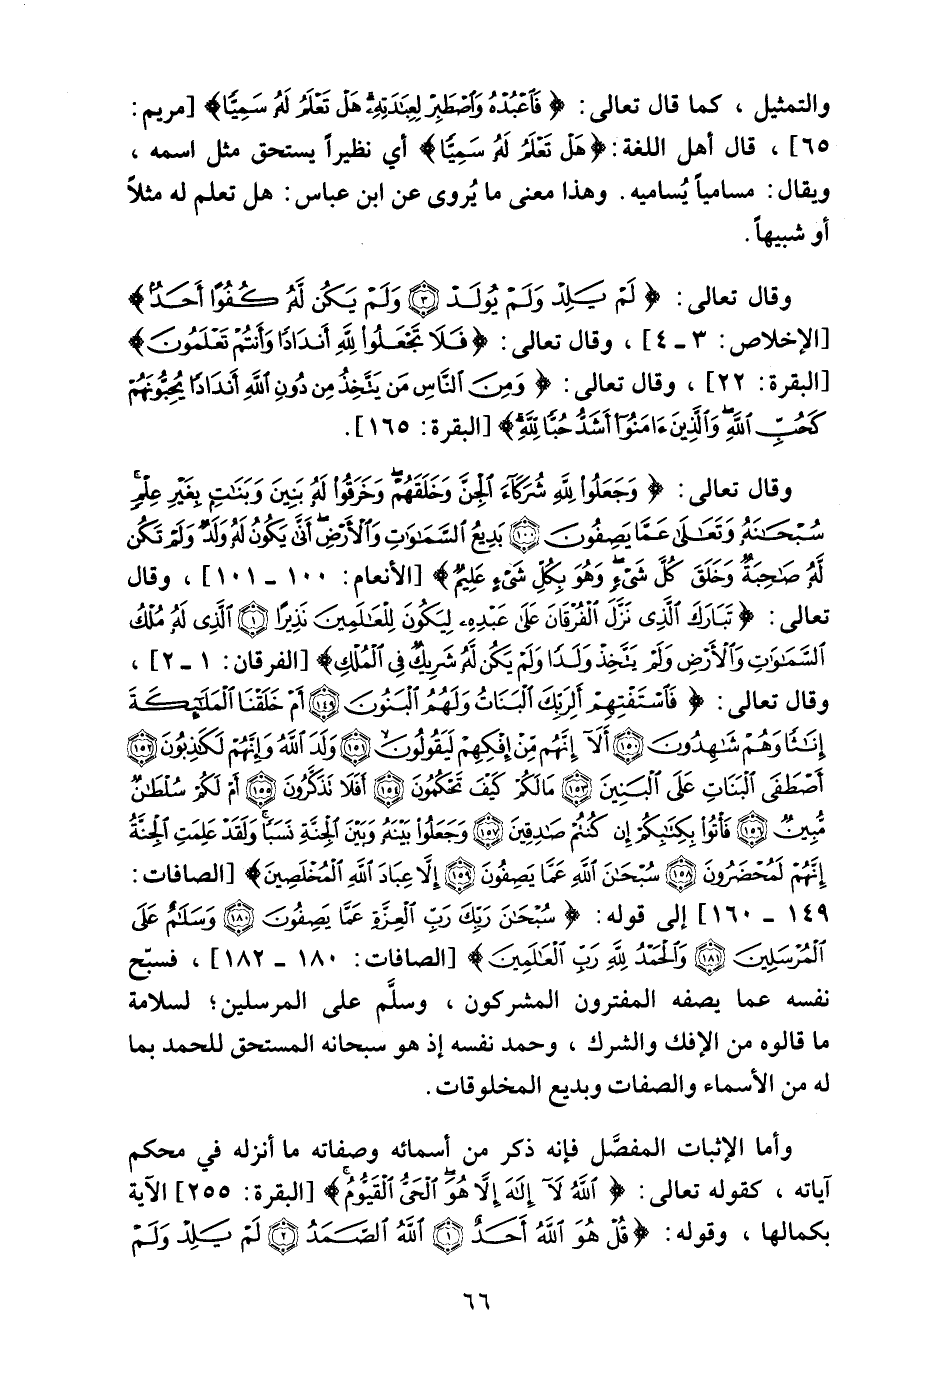 والتمثيل ، كما قال تعالى : ﴿ فَاعْبُدْهُ وَاصْطَبِرْ لِعِبَادَتِهِ هَلْ تَعْلَمُ لَهُ سَمِيًّا﴾ [مريم :
٦٥] ، قال أهل اللغة : ﴿هَلْ تَعْلَمُ لَهُ سَمِيًّا﴾ أي نظيراً يستحق مثل اسمه ،
ويقال : مسامياً يُساميه . وهذا معنى ما يُروى عن ابن عباس : هل تعلم له مثلاً
أو شبيهاً .
وقال تعالى : ﴿ لَمْ يَلِدْ وَلَمْ يُولَدْ ﴿٣﴾ وَلَمْ يَكُن لَّهُ كُفُوًا أَحَدٌ﴾
[الإخلاص : ٣ ـ ٤] ، وقال تعالى : ﴿فَلَا تَجْعَلُوا لِلَّهِ أَندَادًا وَأَنتُمْ تَعْلَمُونَ﴾
[البقرة : ٢٢] ، وقال تعالى : ﴿ وَمِنَ النَّاسِ مَن يَتَّخِذُ مِن دُونِ اللَّهِ أَندَادًا يُحِبُّونَهُمْ
كَحُبِّ اللَّهِ وَالَّذِينَ ءَامَنُوا أَشَدُّ حُبًّا لِلَّهِ﴾ [البقرة : ١٦٥] .
وقال تعالى : ﴿ وَجَعَلُوا لِلَّهِ شُرَكَاءَ الْجِنَّ وَخَلَقَهُمْ وَخَرَقُوا لَهُ بَنِينَ وَبَنَاتٍ بِغَيْرِ عِلْمٍ
سُبْحَانَهُ وَتَعَالَى عَمَّا يَصِفُونَ ﴿١٠٠﴾ بَدِيعُ السَّمَاوَاتِ وَالْأَرْضِ أَنَّى يَكُونُ لَهُ وَلَدٌ وَلَمْ تَكُن
لَّهُ صَاحِبَةٌ وَخَلَقَ كُلَّ شَيْءٍ وَهُوَ بِكُلِّ شَيْءٍ عَلِيمٌ﴾ [الأنعام : ١٠٠ ـ ١٠١] ، وقال
تعالى : ﴿ تَبَارَكَ الَّذِي نَزَّلَ الْفُرْقَانَ عَلَى عَبْدِهِ لِيَكُونَ لِلْعَالَمِينَ نَذِيرًا ﴿١﴾ الَّذِي لَهُ مُلْكُ
السَّمَاوَاتِ وَالْأَرْضِ وَلَمْ يَتَّخِذْ وَلَدًا وَلَمْ يَكُن لَّهُ شَرِيكٌ فِي الْمُلْكِ﴾ [الفرقان : ١ ـ ٢] ،
وقال تعالى : ﴿ فَاسْتَفْتِهِمْ أَلِرَبِّكَ الْبَنَاتُ وَلَهُمُ الْبَنُونَ ﴿١٤٩﴾ أَمْ خَلَقْنَا الْمَلَائِكَةَ
إِنَاثًا وَهُمْ شَاهِدُونَ ﴿١٥٠﴾ أَلَا إِنَّهُم مِّنْ إِفْكِهِمْ لَيَقُولُونَ ﴿١٥١﴾ وَلَدَ اللَّهُ وَإِنَّهُمْ لَكَاذِبُونَ ﴿١٥٢﴾
أَصْطَفَى الْبَنَاتِ عَلَى الْبَنِينَ ﴿١٥٣﴾ مَا لَكُمْ كَيْفَ تَحْكُمُونَ ﴿١٥٤﴾ أَفَلَا تَذَكَّرُونَ ﴿١٥٥﴾ أَمْ لَكُمْ سُلْطَانٌ
مُّبِينٌ ﴿١٥٦﴾ فَأْتُوا بِكِتَابِكُمْ إِن كُنتُمْ صَادِقِينَ ﴿١٥٧﴾ وَجَعَلُوا بَيْنَهُ وَبَيْنَ الْجِنَّةِ نَسَبًا وَلَقَدْ عَلِمَتِ الْجِنَّةُ
إِنَّهُمْ لَمُحْضَرُونَ ﴿١٥٨﴾ سُبْحَانَ اللَّهِ عَمَّا يَصِفُونَ ﴿١٥٩﴾ إِلَّا عِبَادَ اللَّهِ الْمُخْلَصِينَ﴾ [الصافات :
١٤٩ ـ ١٦٠] إلى قوله : ﴿ سُبْحَانَ رَبِّكَ رَبِّ الْعِزَّةِ عَمَّا يَصِفُونَ ﴿١٨٠﴾ وَسَلَامٌ عَلَى
الْمُرْسَلِينَ ﴿١٨١﴾ وَالْحَمْدُ لِلَّهِ رَبِّ الْعَالَمِينَ ﴾ [الصافات : ١٨٠ ـ ١٨٢] ، فسبّح
نفسه عما يصفه المفترون المشركون ، وسلَّم على المرسلين ؛ لسلامة
ما قالوه من الإفك والشرك ، وحمد نفسه إذ هو سبحانه المستحق للحمد بما
له من الأسماء والصفات وبديع المخلوقات .
وأما الإثبات المفصَّل فإنه ذكر من أسمائه وصفاته ما أنزله في محكم
آياته ، كقوله تعالى : ﴿ اللَّهُ لَا إِلَهَ إِلَّا هُوَ الْحَيُّ الْقَيُّومُ﴾ [البقرة : ٢٥٥] الآية
بكمالها ، وقوله : ﴿قُلْ هُوَ اللَّهُ أَحَدٌ ﴿١﴾ اللَّهُ الصَّمَدُ ﴿٢﴾ لَمْ يَلِدْ وَلَمْ
٦٦